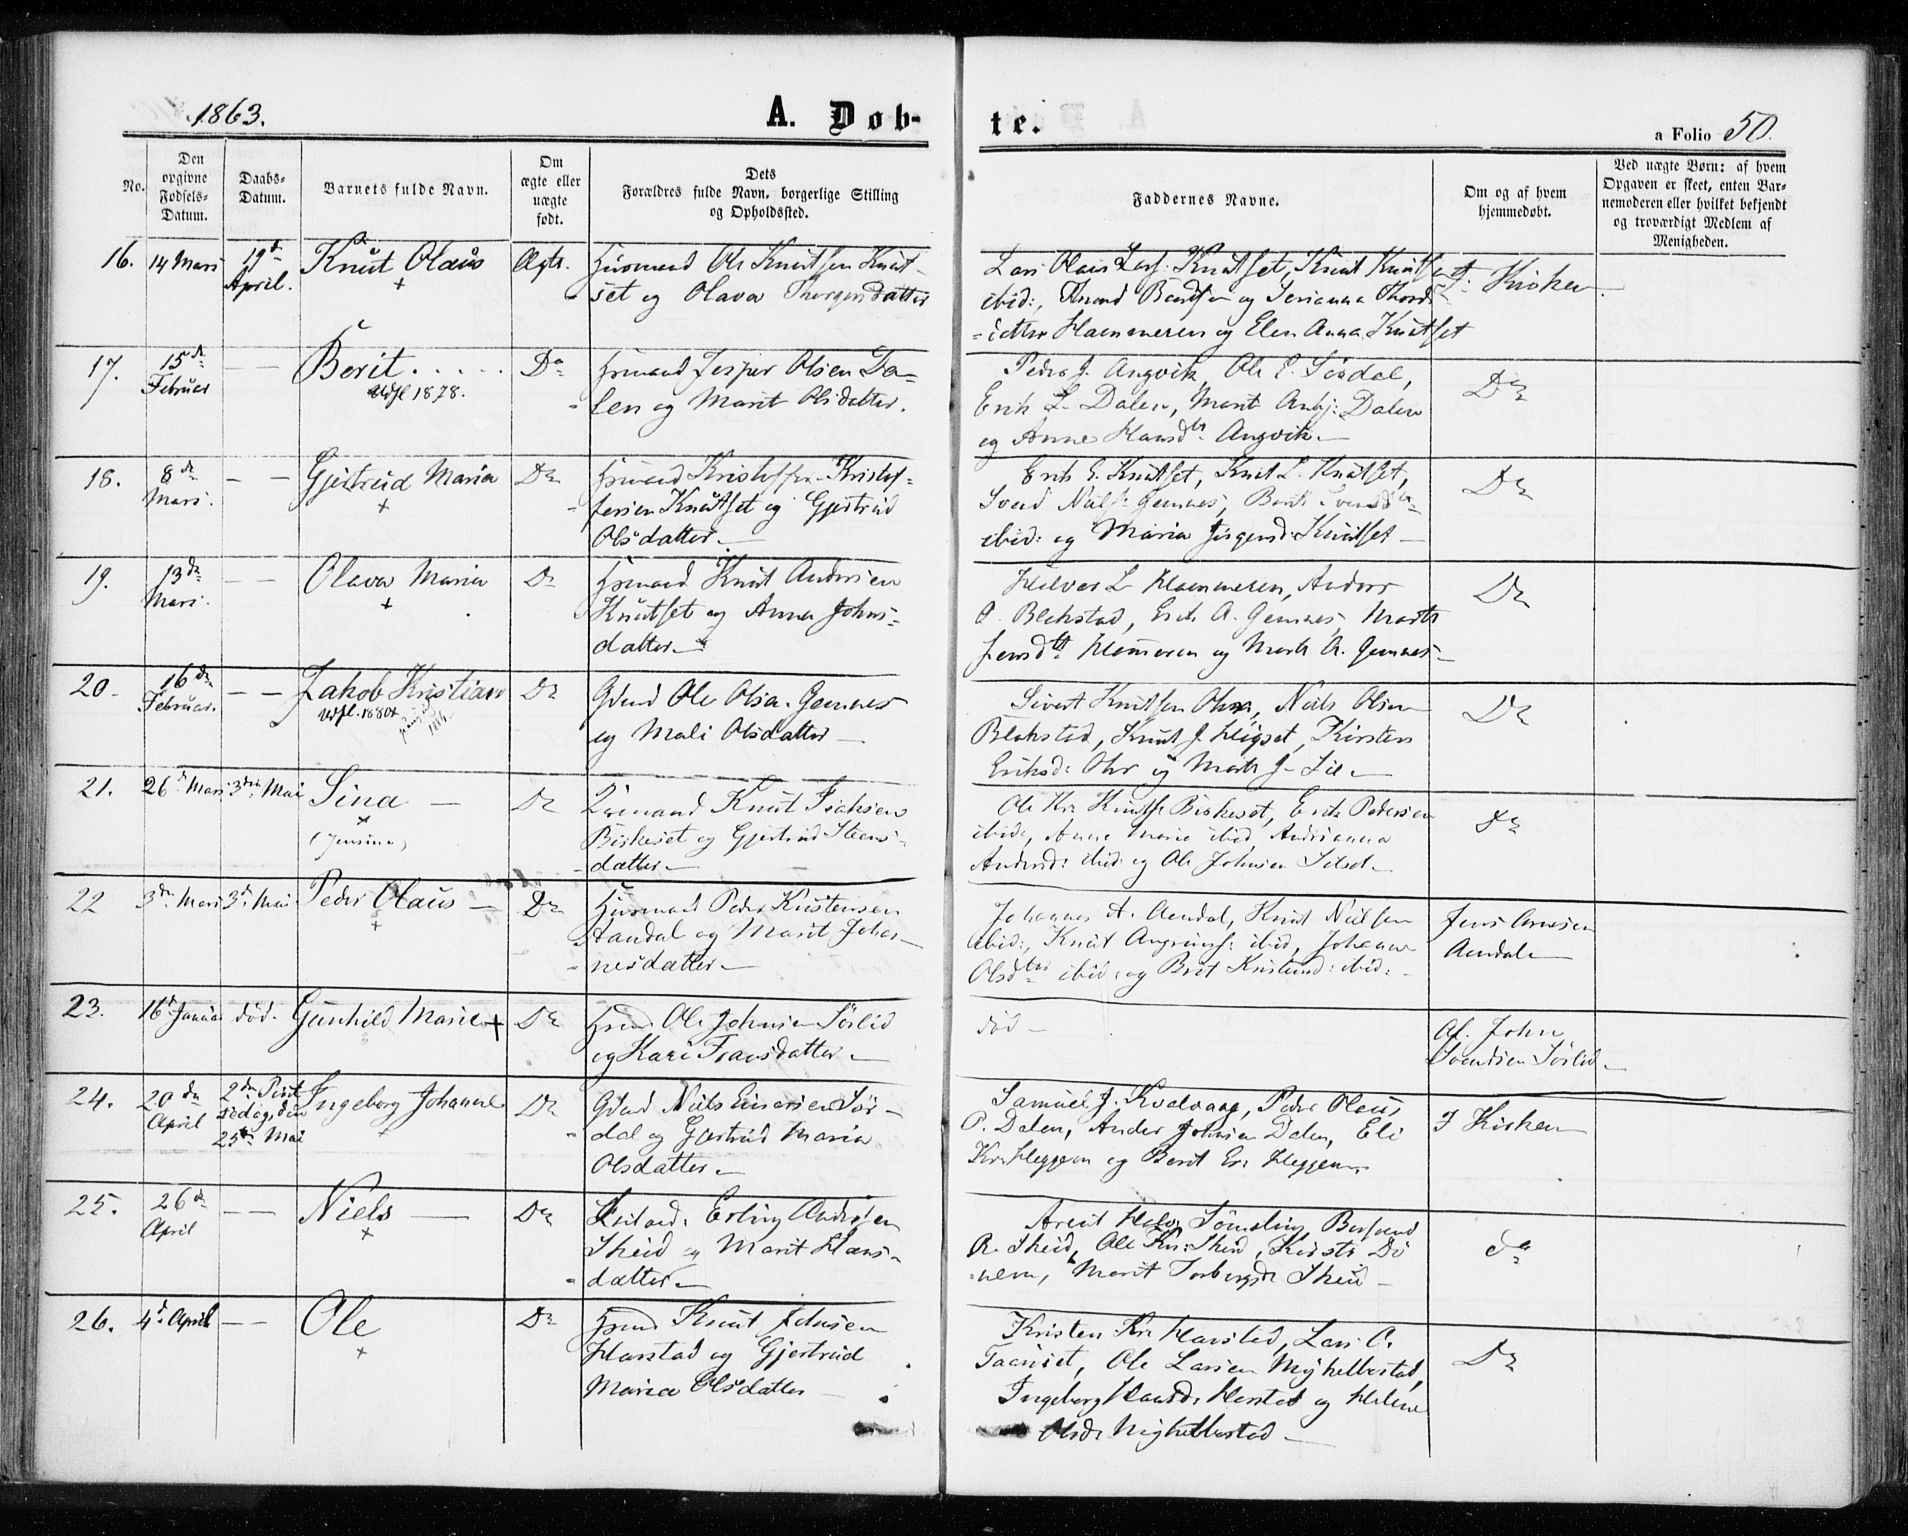 1863.
A. Døb-
te.
a Folio 50.
No.
Den opgivne Fødsels-Datum.
Daabs-Datum.
Barnets fulde Navn.
Om ægte eller uægte født.
Dets
Forældres fulde Navn, borgerlige Stilling
og Opholdssted.
Faddernes Navne.
Om og af hvem
hjemmedøbt.
Ved uægte Børn: af hvem
Opgaven er skeet, enten Bar-
nemoderen eller hvilket bekjendt
og troværdigt Medlem af
Menigheden.
16. 14 Mars 19de April. Knut Olaus + Ægte.
Husmand Ole Knutsen Knut-
set og Olava Thorgersdatter
Lars Olaus Lars: Knutset, Knut Knutsen
ibid:, Knud Bardsen og Serianna Thords
datter Hammeren og Elen Anna Knutset
I: Kirken
17. 15de Februar — — Berit . . . . . Do
Udfl 1878.
Husmand Jesper Olsen Da-
len og Marit Olsdatter.
Peder J. Angvik, Ole P. Sørdal,
Erik L. Dalen, Marit Andr: Dalen
og Anne Hansdtr Angvik —
Do
18. 8de Mars. — — Gjertrud Maria + Do
Husmand Kristoffer Kristof-
fersen Knutset og Gjertrud
Olsdatter. —
Erik E. Knutset, Knut L. Knutset,
Svend Niels: Gemnes, Berit Svendsdtr
ibid: og Maria Jørgensd: Knutset —
Do
19. 13de Mars. — — Olava Maria + Do
Husmand Knut Andersen
Knutset og Anna Johns-
datter. —
Halvor L. Hammeren, Anders
O. Blekstad, Erik A. Gemnes, Marit
Jensdtr Hammeren og Marit A. Gemnes —
Do
20. 16de Februar. — — Jakob Kristian Do
Udfl. 1880
Gdmd Ole Olsen Gemnes
og Mali Olsdatter —
Sivert Knutsen Ohr, Niels Olsen
Blekstad, Knut J. Høgset, Kirsten
Eriksd: Ohr og Marit J. Lie —
Do
21. 26de Mars 3die Mai Sina — + Do
(Jensina)
Husmand Knut Isaksen
Biskeset og Gjertrud Steens-
datter —
Ole Kr. Knuts: Biskeset, Erik Pedersen
ibid:, Anne Marie ibid, Andrianna
Andersd: ibid: og Ole Johnsen Silset —
do
22 3de Mars 3de Mai Peder Olaus — + Do
Husmand Peder Kristensen
Aandal og Marit Johan-
nesdatter —
Johannes A. Aandal, Knut Nielsen
ibid:, Knut Angrims: ibid, Johanne
Olsdtr ibid: og Brit Kristensd: ibid: —
Jens Arnesen
Aandal —
23. 16de Januar død. Gunhild Marie + Do
Hmd Ole Johnsen Sørlid
og Kari Fransdatter —
død —
Af. John
Svendsen Sørlid —
24. 20de April 2den Pint-
sedag den
25de Mai Ingeborg Johanne + Do
Gdmd Niels Einarsen Sør-
dal og Gjertrud Maria
Olsdatter —
Samuel J. Kvalvaag, Peder Olaus
P. Dalen, Anders Johnsen Dalen, Eli
Kr. Heggem og Berit Er. Heggem.
I Kirken
25. 26de April — — Niels — + Do
Erling Andersen
Skeid og Marit Hans-
datter —
Arent
R. Skeid, Ole Kr: Skeid, Kirsti Dø
nem, Marit Torbergsd: Skeid —
do
26. 4de April — — Ole + Do
Hmd Knut Johnsen
Harstad og Gjertrud
Maria Olsdatter —
Kristen Kr. Harstad, Lars O.
Ole Larsen Myklebostad,
Ingeborg Hansd: Harstad og Helene
Olsd: Myklebostad —
Do